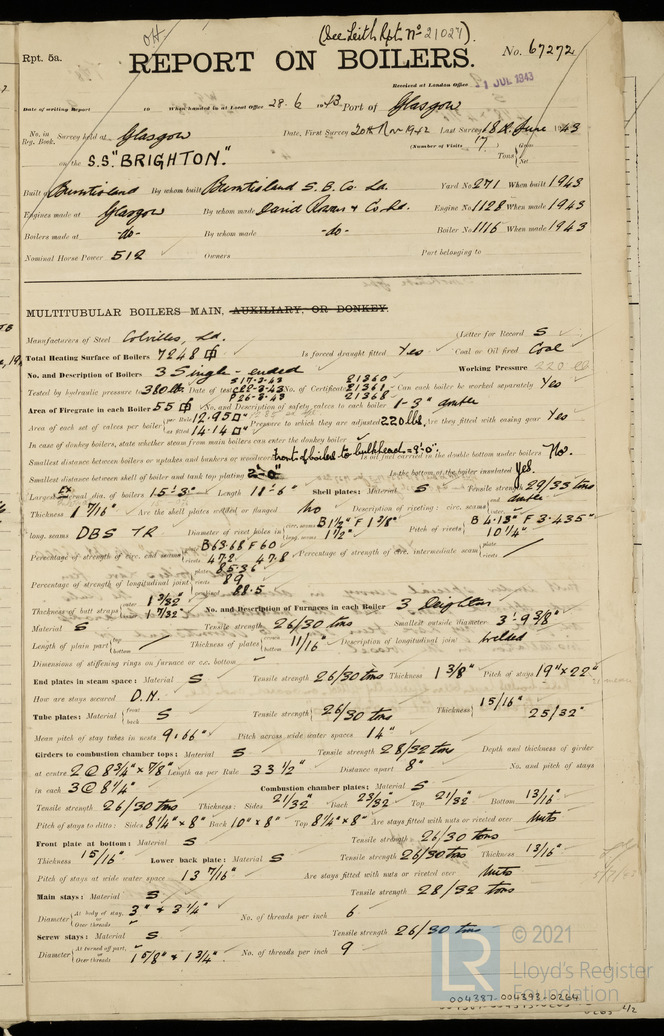 OH
(See Leith Rpt. No 21027).
Rpt. 5a.
REPORT ON BOILERS.
No. 67272
Received at London Office
1 JUL 1943
Date of writing Report to When handed in at Local Office 28. 6 1943 Port of Glasgow
No. in Reg. Book. Survey held at Glasgow Date, First Survey 20th Nov 1942 Last Survey 18th June 1943
(Number of Visits 17) Gross
on the S.S. "BRIGHTON." Tons Net
Built at Burntisland By whom built Burntisland S. B. Co. Ld. Yard No. 271 When built 1943
Engines made at Glasgow By whom made David Rowan & Co Ld. Engine No. 1128 When made 1943
Boilers made at -do- By whom made -do- Boiler No. 1116 When made 1943
Nominal Horse Power 512 Owners Port belonging to
MULTITUBULAR BOILERS MAIN, AUXILIARY, OR DONKEY.
Manufacturers of Steel Colvilles, Ld. (Letter for Record S
Total Heating Surface of Boilers 7248 Is forced draught fitted Yes Coal or Oil fired Coal
No. and Description of Boilers 3 Single-ended Working Pressure 220
S 17-3-43 21360
Tested by hydraulic pressure to 380 lbs Date of test No. of Certificate 21361 Can each boiler be worked separately Yes
21368
Area of Firegrate in each Boiler 55 No. and Description of safety valves to each boiler 1-3" double
Area of each set of valves per boiler per Rule 12.95 as fitted 14.14 Pressure to which they are adjusted 220 lbs. Are they fitted with easing gear Yes
In case of donkey boilers, state whether steam from main boilers can enter the donkey boiler
Smallest distance between boilers or uptakes and bunkers or woodwork Front of boilers to bulkhead Is oil fuel carried in the double bottom under boilers No.
Smallest distance between shell of boiler and tank top plating 2'-0" Is the bottom of the boiler insulated Yes.
Largest Ex internal dia. of boilers 15'-3" Length 11'-6" Shell plates: Material S Tensile strength 29/33 tons
Thickness 1 7/16" Are the shell plates welded or flanged No Description of riveting: circ. seams end double
long. seams DBS TR Diameter of rivet holes in circ. seams B 1 1/4" F 1 3/8" long. seams 1 1/2" Pitch of rivets B 4.13" F 3.435" 10 1/4"
Percentage of strength of circ. end seams plate B 63.68 F 60 rivets 47.2 47.8 Percentage of strength of circ. intermediate seam plate rivets
Percentage of strength of longitudinal joint plate 85.36 rivets 89 combined 88.5
Thickness of butt straps outer 1 3/32" inner 1 7/32" No. and Description of Furnaces in each Boiler 3 Deighton
Material S Tensile strength 26/30 tons Smallest outside diameter 3'-9 3/8"
Length of plain part top bottom Thickness of plates crown bottom 11/16" Description of longitudinal joint Welded
Dimensions of stiffening rings on furnace or c.c. bottom
End plates in steam space: Material S Tensile strength 26/30 tons Thickness 1 3/8" Pitch of stays 19" x 22"
How are stays secured D.N.
Tube plates: Material front back S Tensile strength 26/30 tons Thickness 15/16" 25/32"
Mean pitch of stay tubes in nests 9.66" Pitch across wide water spaces 14"
Girders to combustion chamber tops: Material S Tensile strength 28/32 tons Depth and thickness of girder
at centre 2 @ 8 3/4" x 7/8" Length as per Rule 33 1/2" Distance apart 8" No. and pitch of stays
in each 3 @ 8 1/4" Combustion chamber plates: Material S
Tensile strength 26/30 tons Thickness: Sides 21/32" Back 23/32 Top 21/32" Bottom 13/16"
Pitch of stays to ditto: Sides 8 1/4" x 8" Back 10" x 8" Top 8 1/4" x 8" Are stays fitted with nuts or riveted over Nuts
Front plate at bottom: Material S Tensile strength 26/30 tons
Thickness 15/16" Lower back plate: Material S Tensile strength 26/30 tons Thickness 13/16"
Pitch of stays at wide water space 13 7/16" Are stays fitted with nuts or riveted over Nuts
Main stays: Material S Tensile strength 28/32 tons
Diameter At body of stay, or Over threads 3" & 3 1/4" No. of threads per inch 6
Screw stays: Material S Tensile strength 26/30 tons
Diameter At turned off part, or Over threads 1 5/8" & 1 3/4" No. of threads per inch 9
LR
© 2021
Lloyd's Register
Foundation
004387-004393-0264